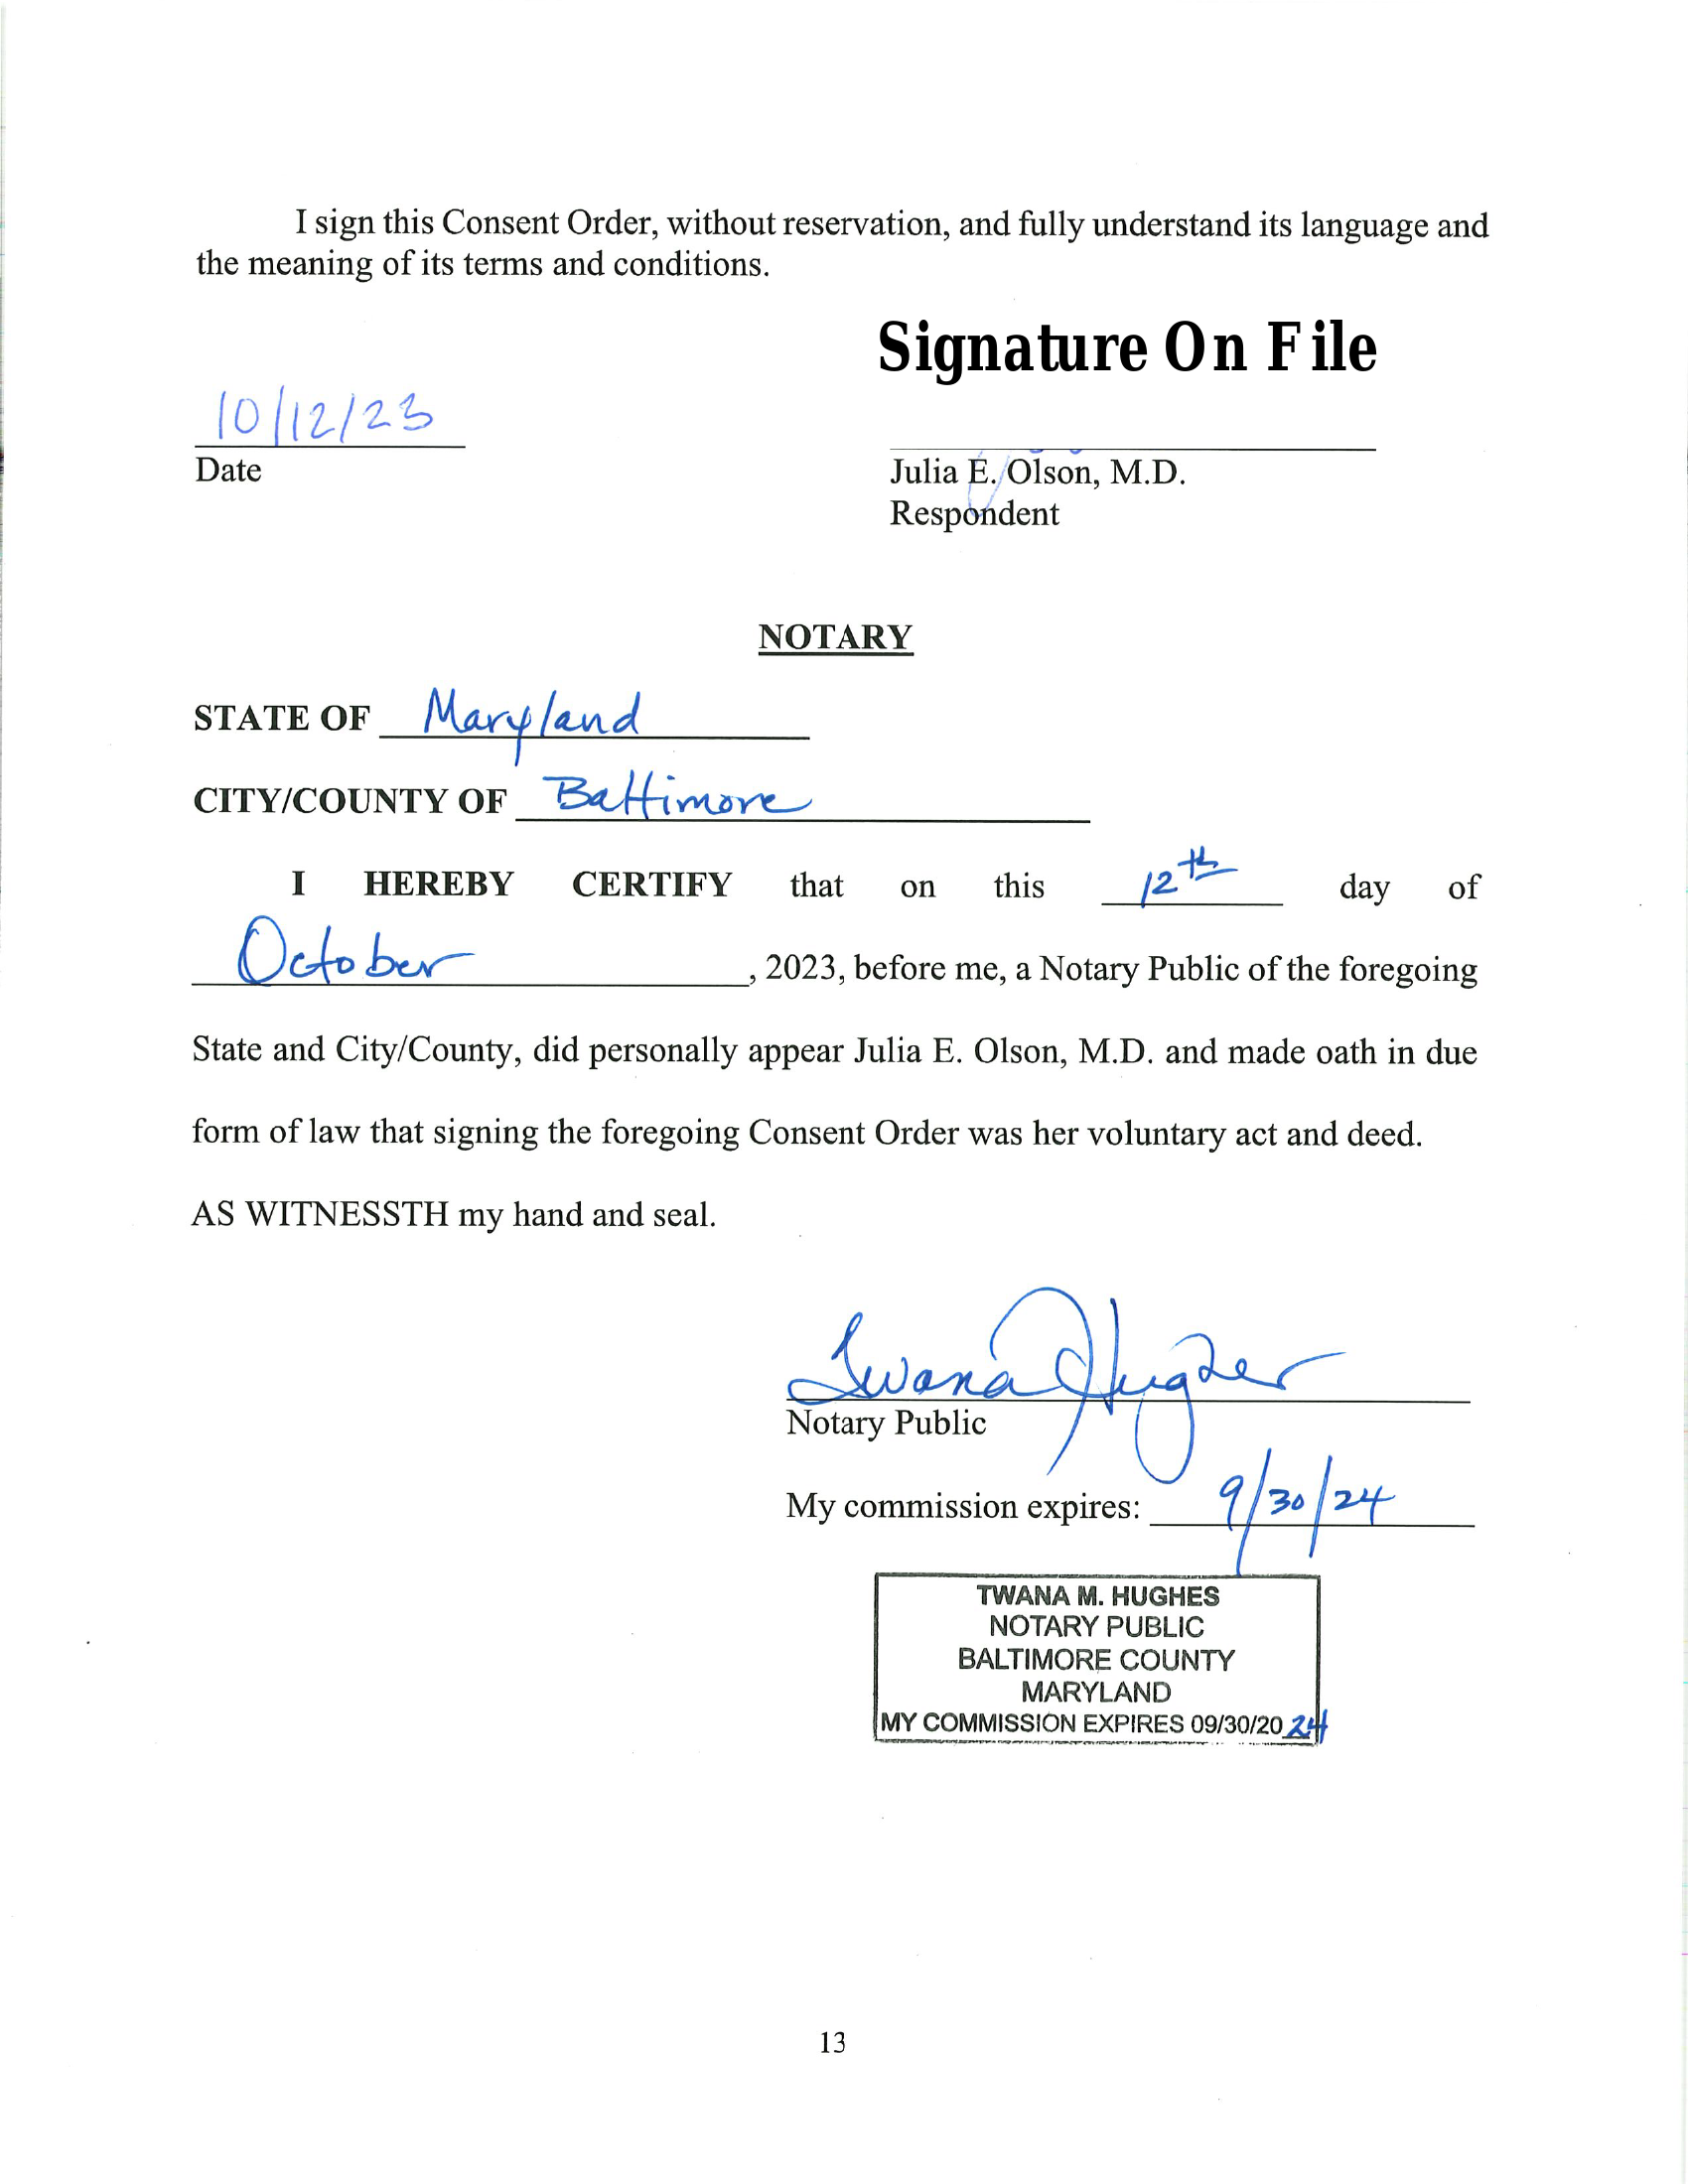 I sign this Consent Order, without reservation, and fully understand its language and
the meaning of its terms and conditions.
Signature On File
10/12/23
Date
Julia E. Olson, M.D.
Respondent
NOTARY
STATE OF Maryland
CITY/COUNTY OF Baltimore
I HEREBY CERTIFY that on this 12th day of
October, 2023, before me, a Notary Public of the foregoing
State and City/County, did personally appear Julia E. Olson, M.D. and made oath in due
form of law that signing the foregoing Consent Order was her voluntary act and deed.
AS WITNESSTH my hand and seal.
Twana Hughes
Notary Public
My commission expires: 9/30/24
TWANA M. HUGHES
NOTARY PUBLIC
BALTIMORE COUNTY
MARYLAND
MY COMMISSION EXPIRES 09/30/2024
13